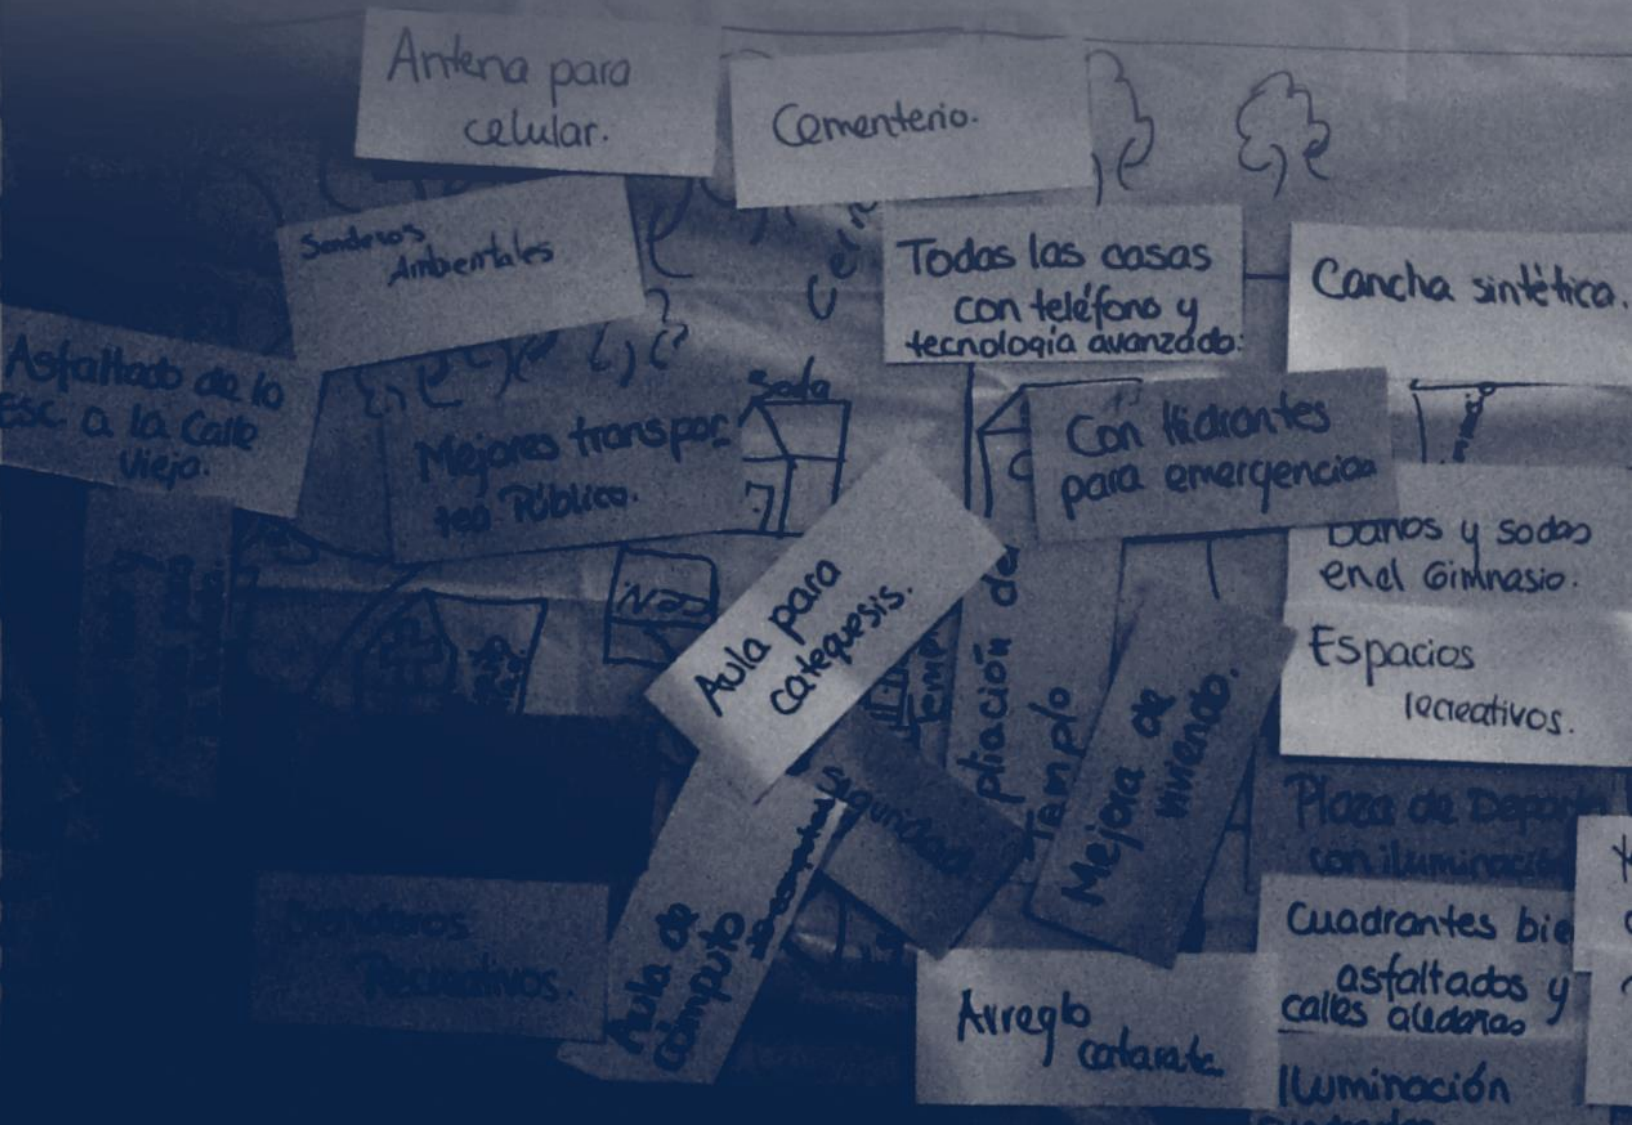 Antena para
celular.
Cementerio.
Senderos
Ambientales
Todas las casas
con teléfono y
tecnología avanzada.
Cancha sintética.
Asfaltado de la
Esc. a la Calle
Vieja.
Mejores transpor
tes Público.
Soda
Con Hidrantes
para emergencias
Baños y sodas
en el Gimnasio.
Aula para
catequesis.
Espacios
recreativos.
pliación del
Templo
Mejora de
vivienda.
Seguridad
Plaza de Deport
con iluminación
Senderos
Recreativos.
Aula de
cómputo
Arreglo
catarata.
Cuadrantes bie
asfaltados y
calles aledañas
Iluminación